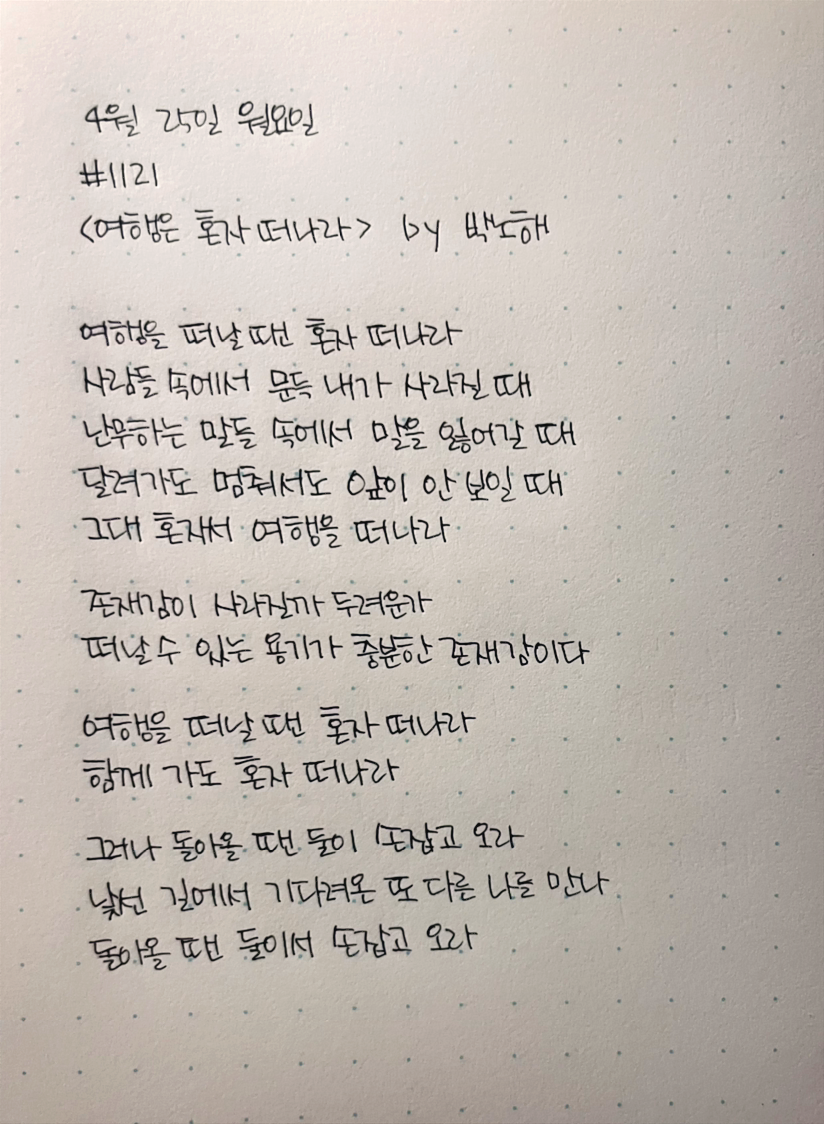 4월 25일 월요일
#1121
<여행은 혼자 떠나라> by 박노해
여행을 떠날 땐 혼자 떠나라
사람들 속에서 문득 내가 사라질 때
난무하는 말들 속에서 말을 잃어갈 때
달려가도 멈춰서도 앞이 안 보일 때
그대 혼자서 여행을 떠나라
존재감이 사라질까 두려운가
떠날 수 있는 용기가 충분한 존재감이다
여행을 떠날 땐 혼자 떠나라
함께 가도 혼자 떠나라
그러나 돌아올 땐 둘이 손잡고 오라
낯선 길에서 기다려온 또 다른 나를 만나
돌아올 땐 둘이서 손잡고 오라